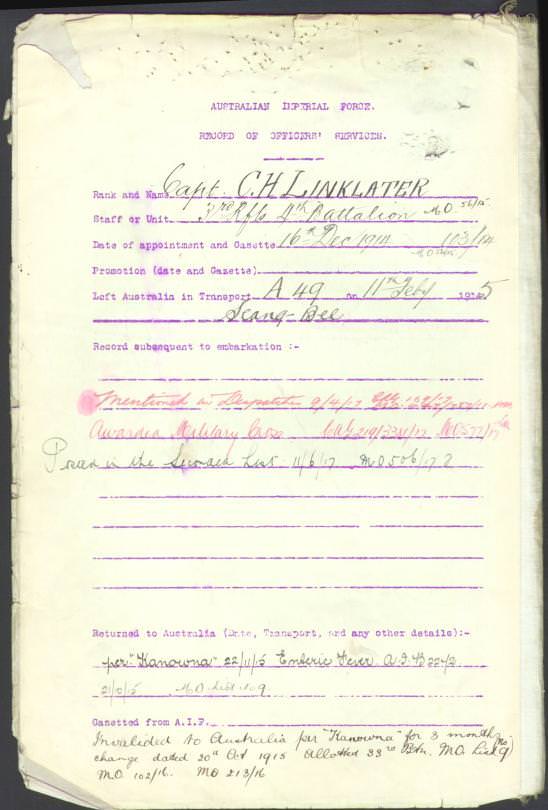 AUSTRALIAN IMPERIAL FORCE.
RECORD OF OFFICERS' SERVICES.
Rank and Name Capt. C. H LINKLATER
Staff or Unit 3rd Rfts 4th Battalion M.O. 56/15
Date of appointment and Gazette 16th Dec 1914 103/14
Promotion (date and Gazette)
Left Australia in Transport A 49 on 11th Feby 1915
Seang-Bee
Record subsequent to embarkation :-
Mentioned in Despatches 9/4/17
Awarded Military Cross CAG 219/3311/17 MO 577/17
Placed in the Seconded List 11/6/17 MO 506/17
Returned to Australia (Date, Transport, and any other details):-
per "Kanowna" 22/11/15 Enteric Fever A.I.
M.O. List 109
Gazetted from A.I.F.
Invalided to Australia per "Kanowna" for 3 months
change dated 20th Oct 1915 Allotted 33rd Btn. M.O. List
MO 102/16. MO 213/16